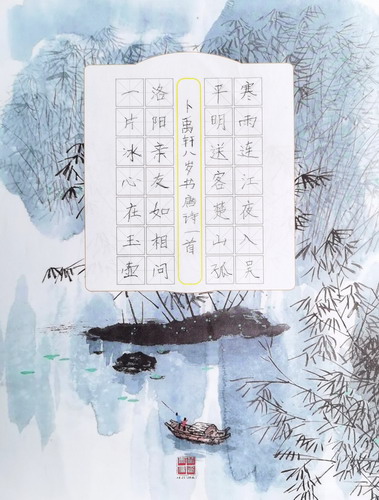 寒雨连江夜入吴
平明送客楚山孤
卜禹轩八岁书唐诗一首
洛阳亲友如相问
一片冰心在玉壶